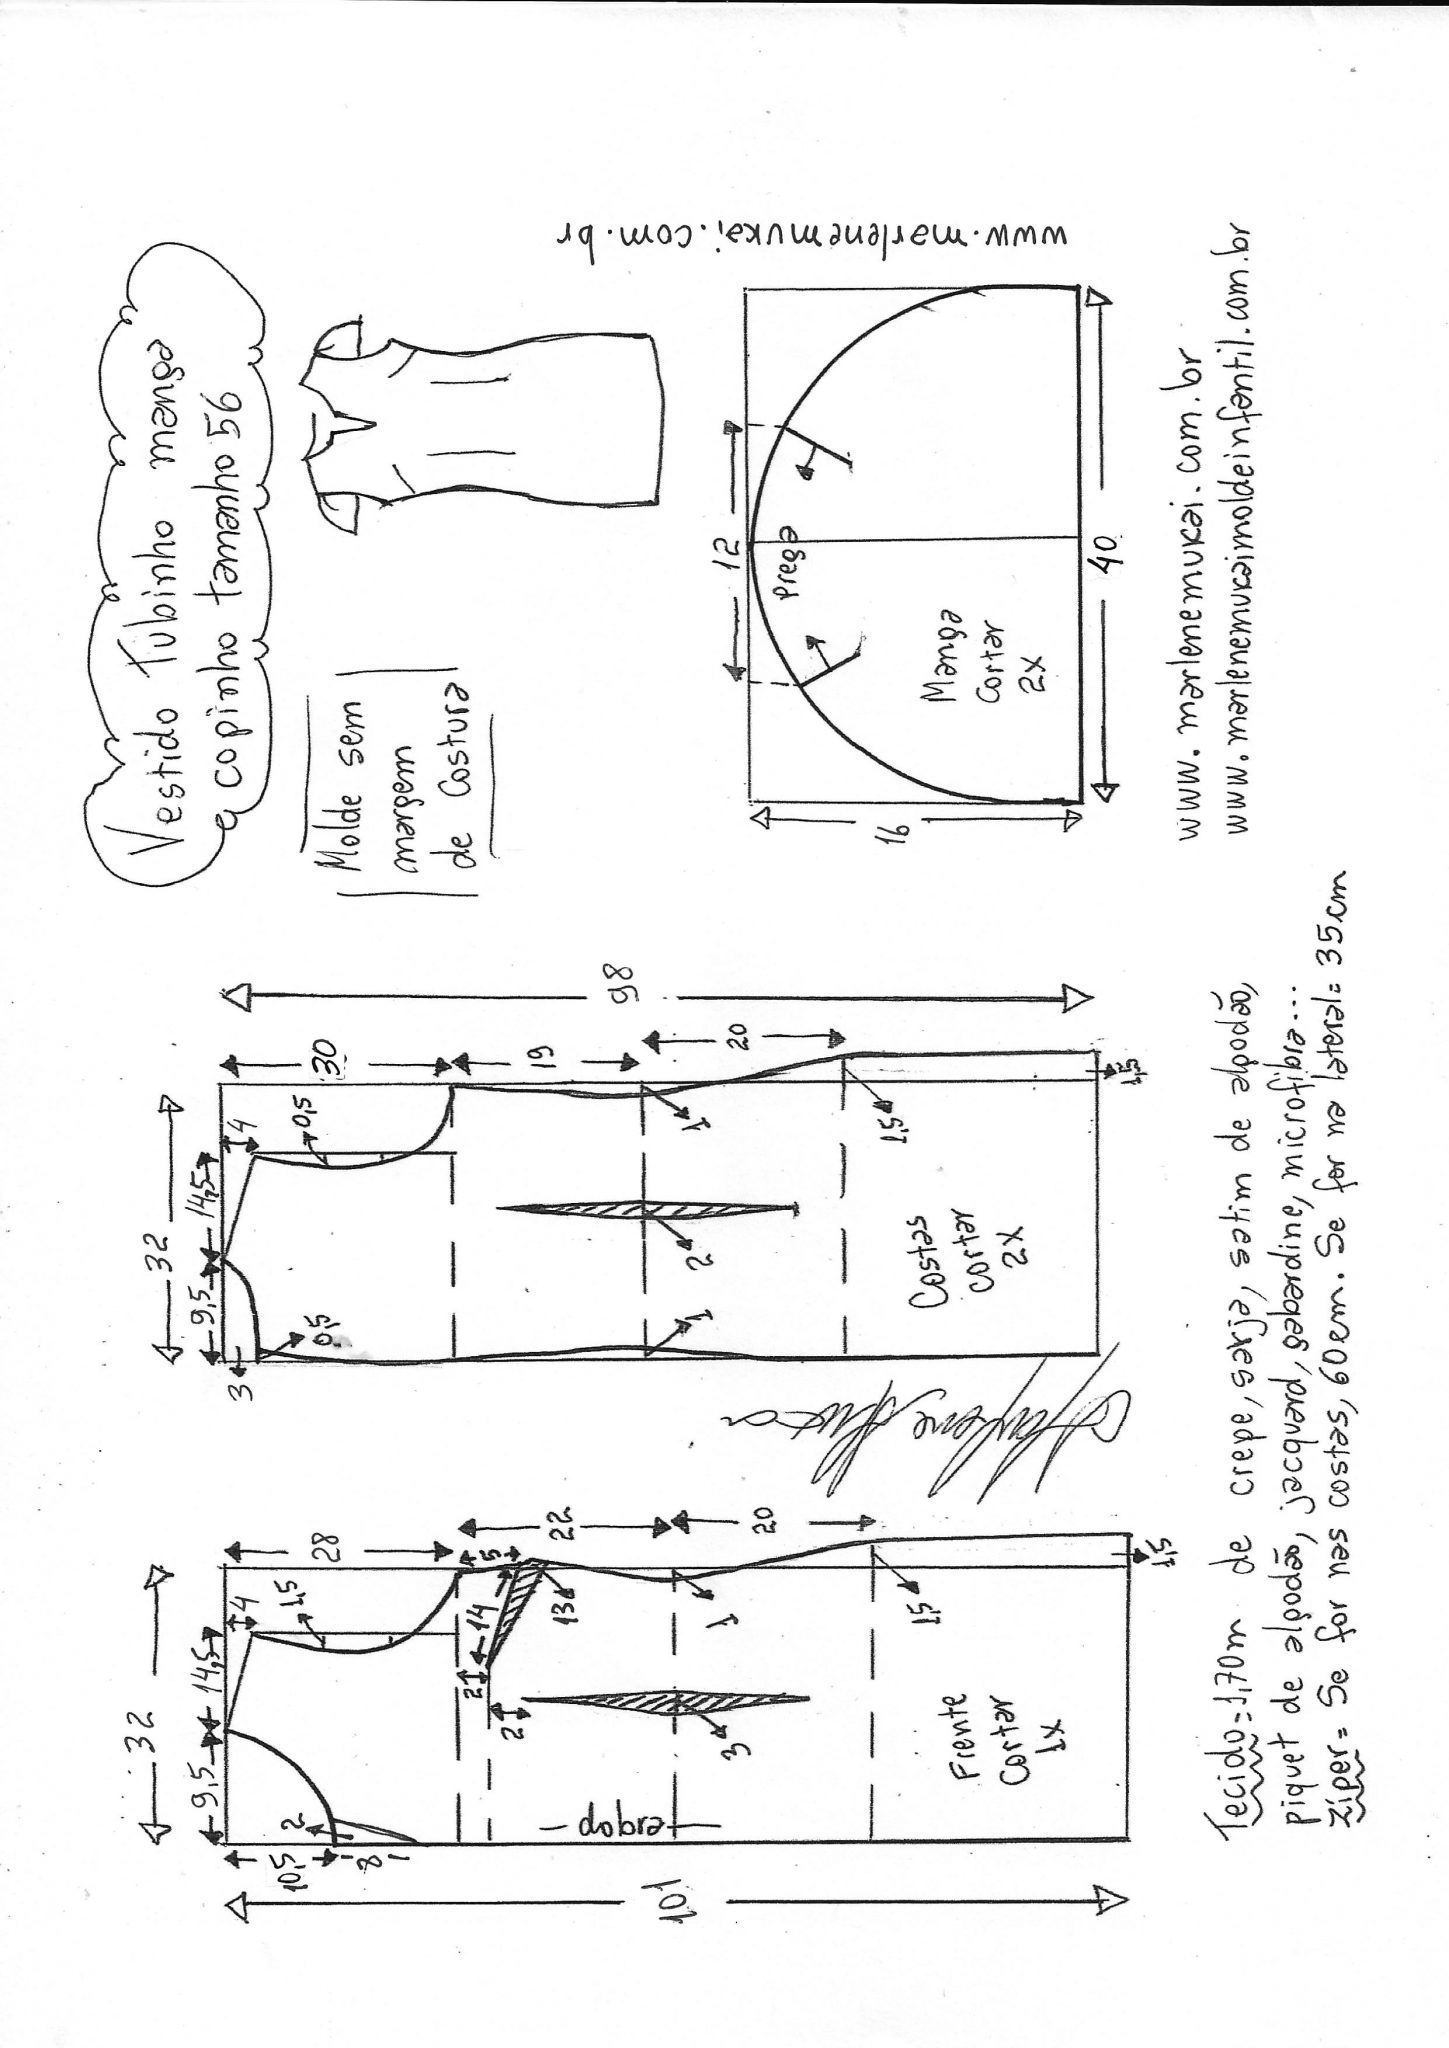 Vestido Tubinho manga
copinho tamanho 56
Molde sem
margem
de costura
www.marlenemukai.com.br
32
9,5
14,5
4
1,5
28
10,5
2
8
5
22
14
2
2
3
13
20
1
3
1,5
1,5
dobra
101
Frente
Cortar
1x
32
9,5
14,5
4
0,5
30
3
0,5
19
20
98
1
2
1
1,5
1,5
Costas
Cortar
2x
12
Prega
16
40
Manga
Cortar
2x
www.marlenemukai.com.br
www.marlenemukaimoldeinfantil.com.br
Tecido=1,70m de crepe, sarja, setim de algodão,
piquet de algodão, jacquard, gabardine, microfibra...
Zíper= Se for nas costas, 60cm. Se for na lateral= 35cm